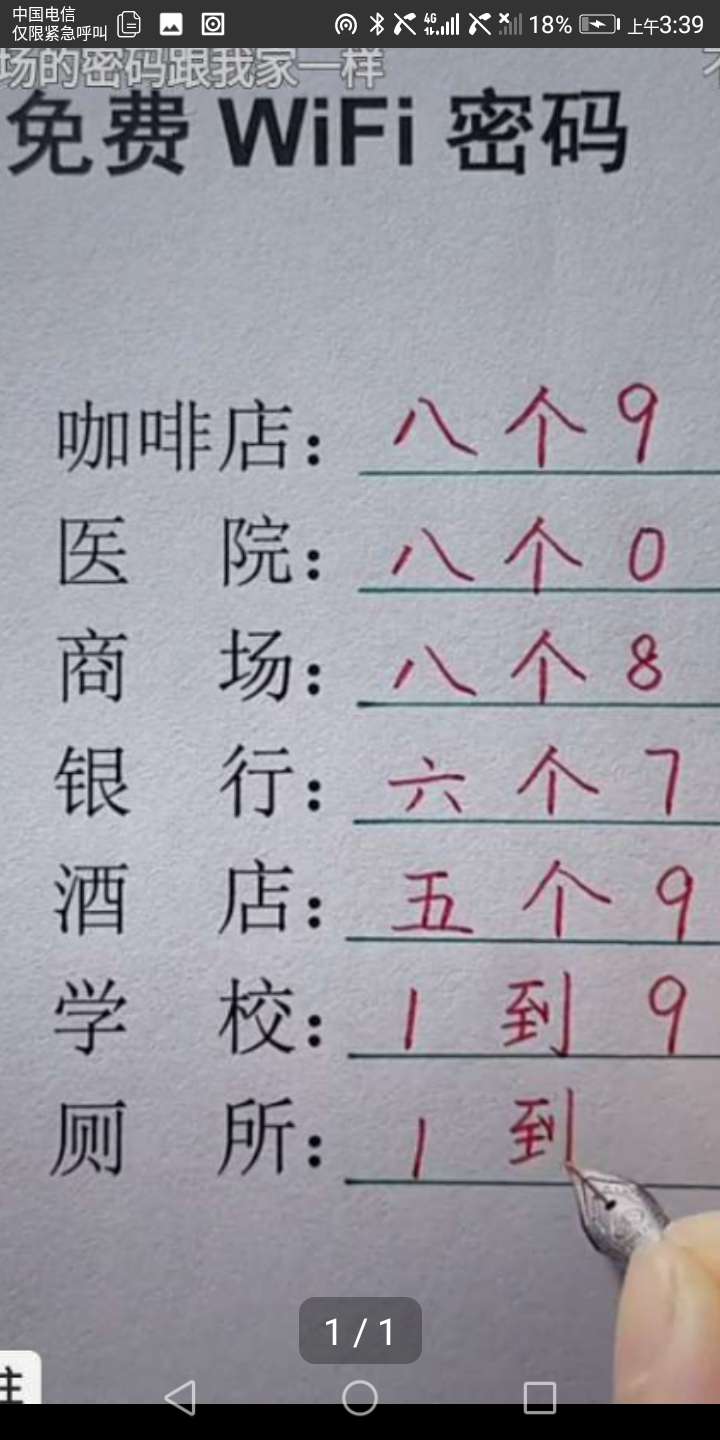 中国电信
仅限紧急呼叫
4G 18% 上午3:39
场的密码跟我家一样
免费 WiFi 密码
咖啡店：八个9
医院：八个0
商场：八个8
银行：六个7
酒店：五个9
学校：1到9
厕所：1到
1 / 1